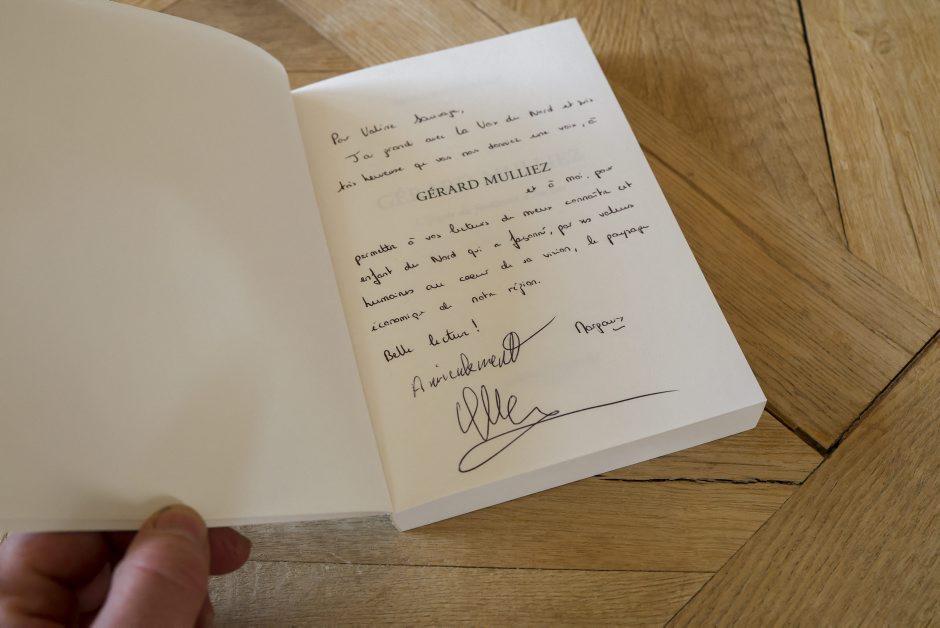 Pour Valérie Sauvage,
J'ai grandi avec la Voix du Nord et suis
très heureuse que vous nous donniez une voix, à
GÉRARD MULLIEZ
et à moi, pour
permettre à vos lecteurs de mieux connaître cet
enfant du Nord qui a façonné, par ses valeurs
humaines au coeur de sa vision, le paysage
économique de notre région.
Belle lecture !
Margaux
Amicalement